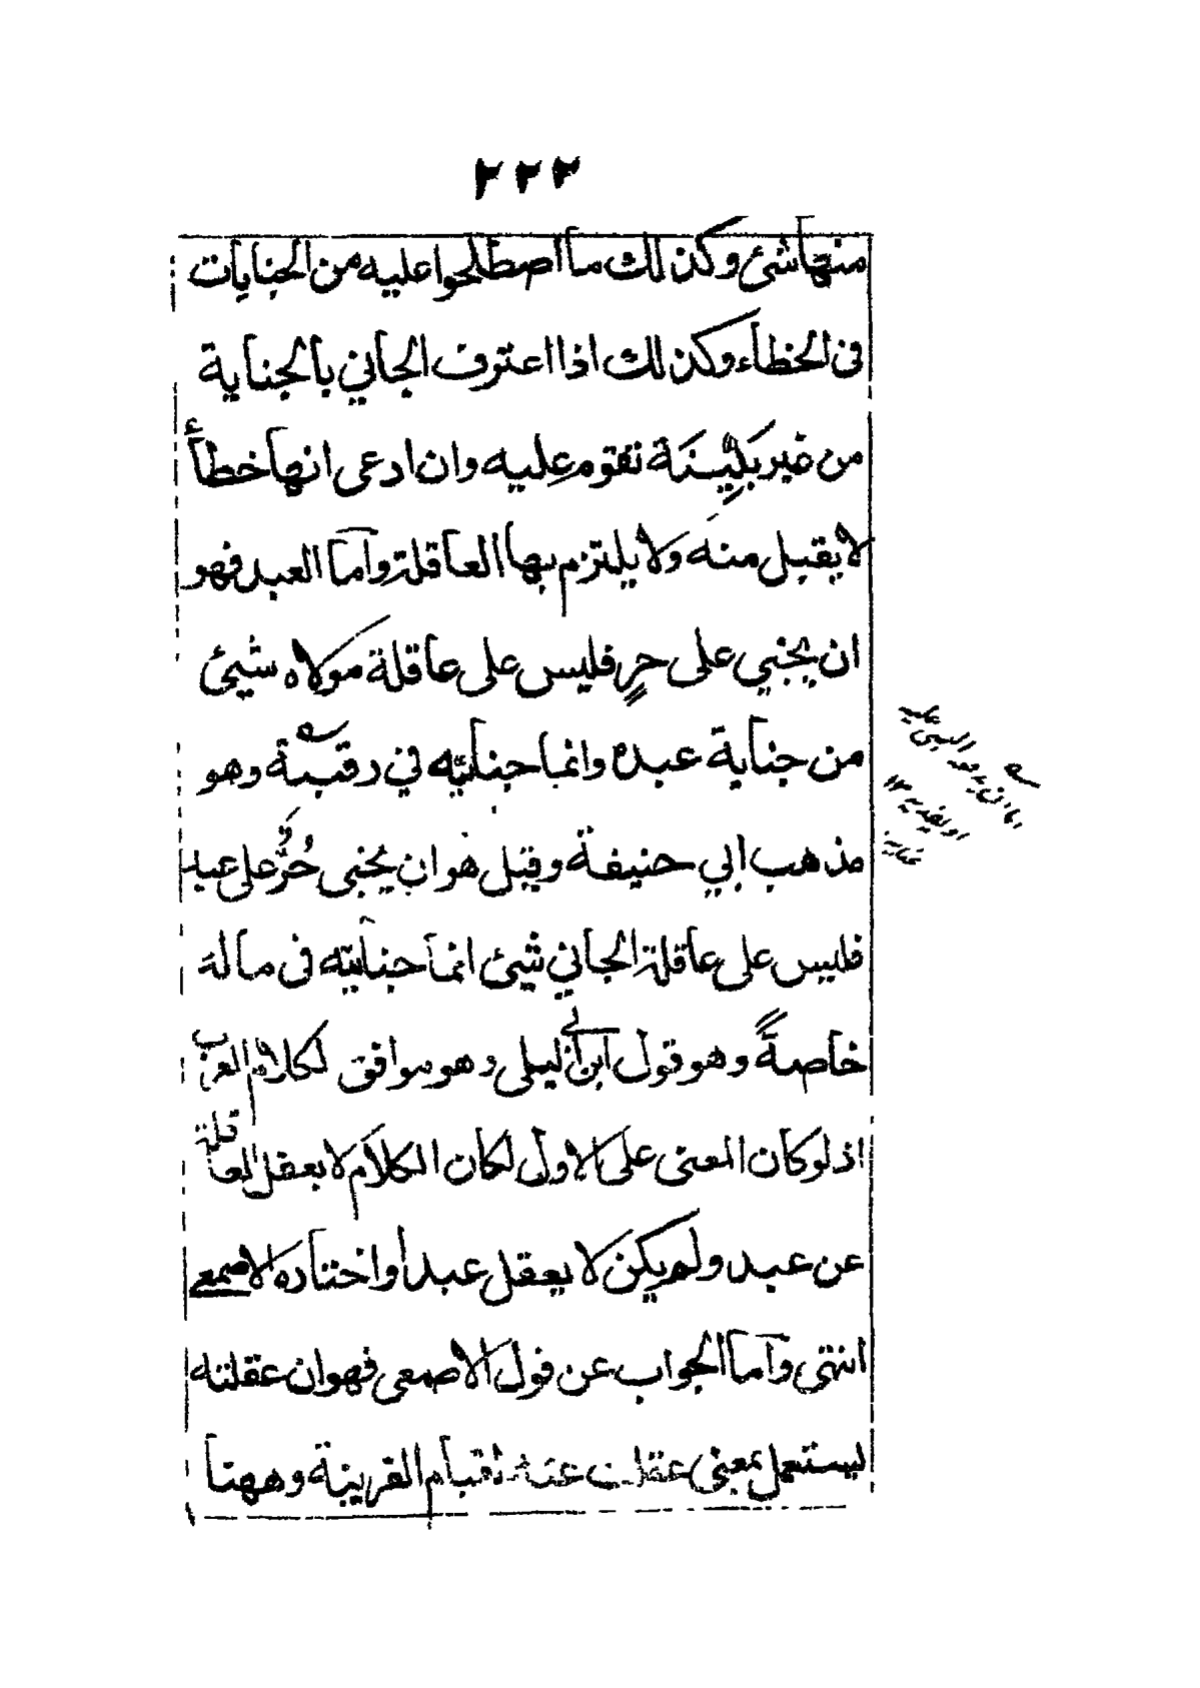 ٢٢٣
منها شئ وكذلك ما اصطلحوا عليه من الجنايات
في الخطاء وكذلك اذا اعترف الجاني بالجناية
من غير بيّنة تقوم عليه وان ادعى انها خطأ
لا يقبل منه ولا يلتزم بها العاقلة وآما العبد فهو
ان يجني على حرٍ فليس على عاقلة مولاه شيئ
من جناية عبده وانما جنايته في رقبته وهو
مذهب ابي حنيفة وقيل هو ان يجنى حُرٌّ على عبد
فليس على عاقلة الجاني شيئ انما جنايته في ماله
خاصةً وهو قول ابن ابي ليلى وهو موافق لكلام العرب
اذ لو كان المعنى على الاول لكان الكلام لا يعقل العاقلة
عن عبد ولم يكن لا يعقل عبداً واختاره الاصمعي
انتهى وآما الجواب عن قول الاصمعى فهو ان عقلته
يستعمل بمعنى عقلت عنه بقيام القرينة وههنا
اما ان يدفعه الى
او يفديه ١٢
نهاية